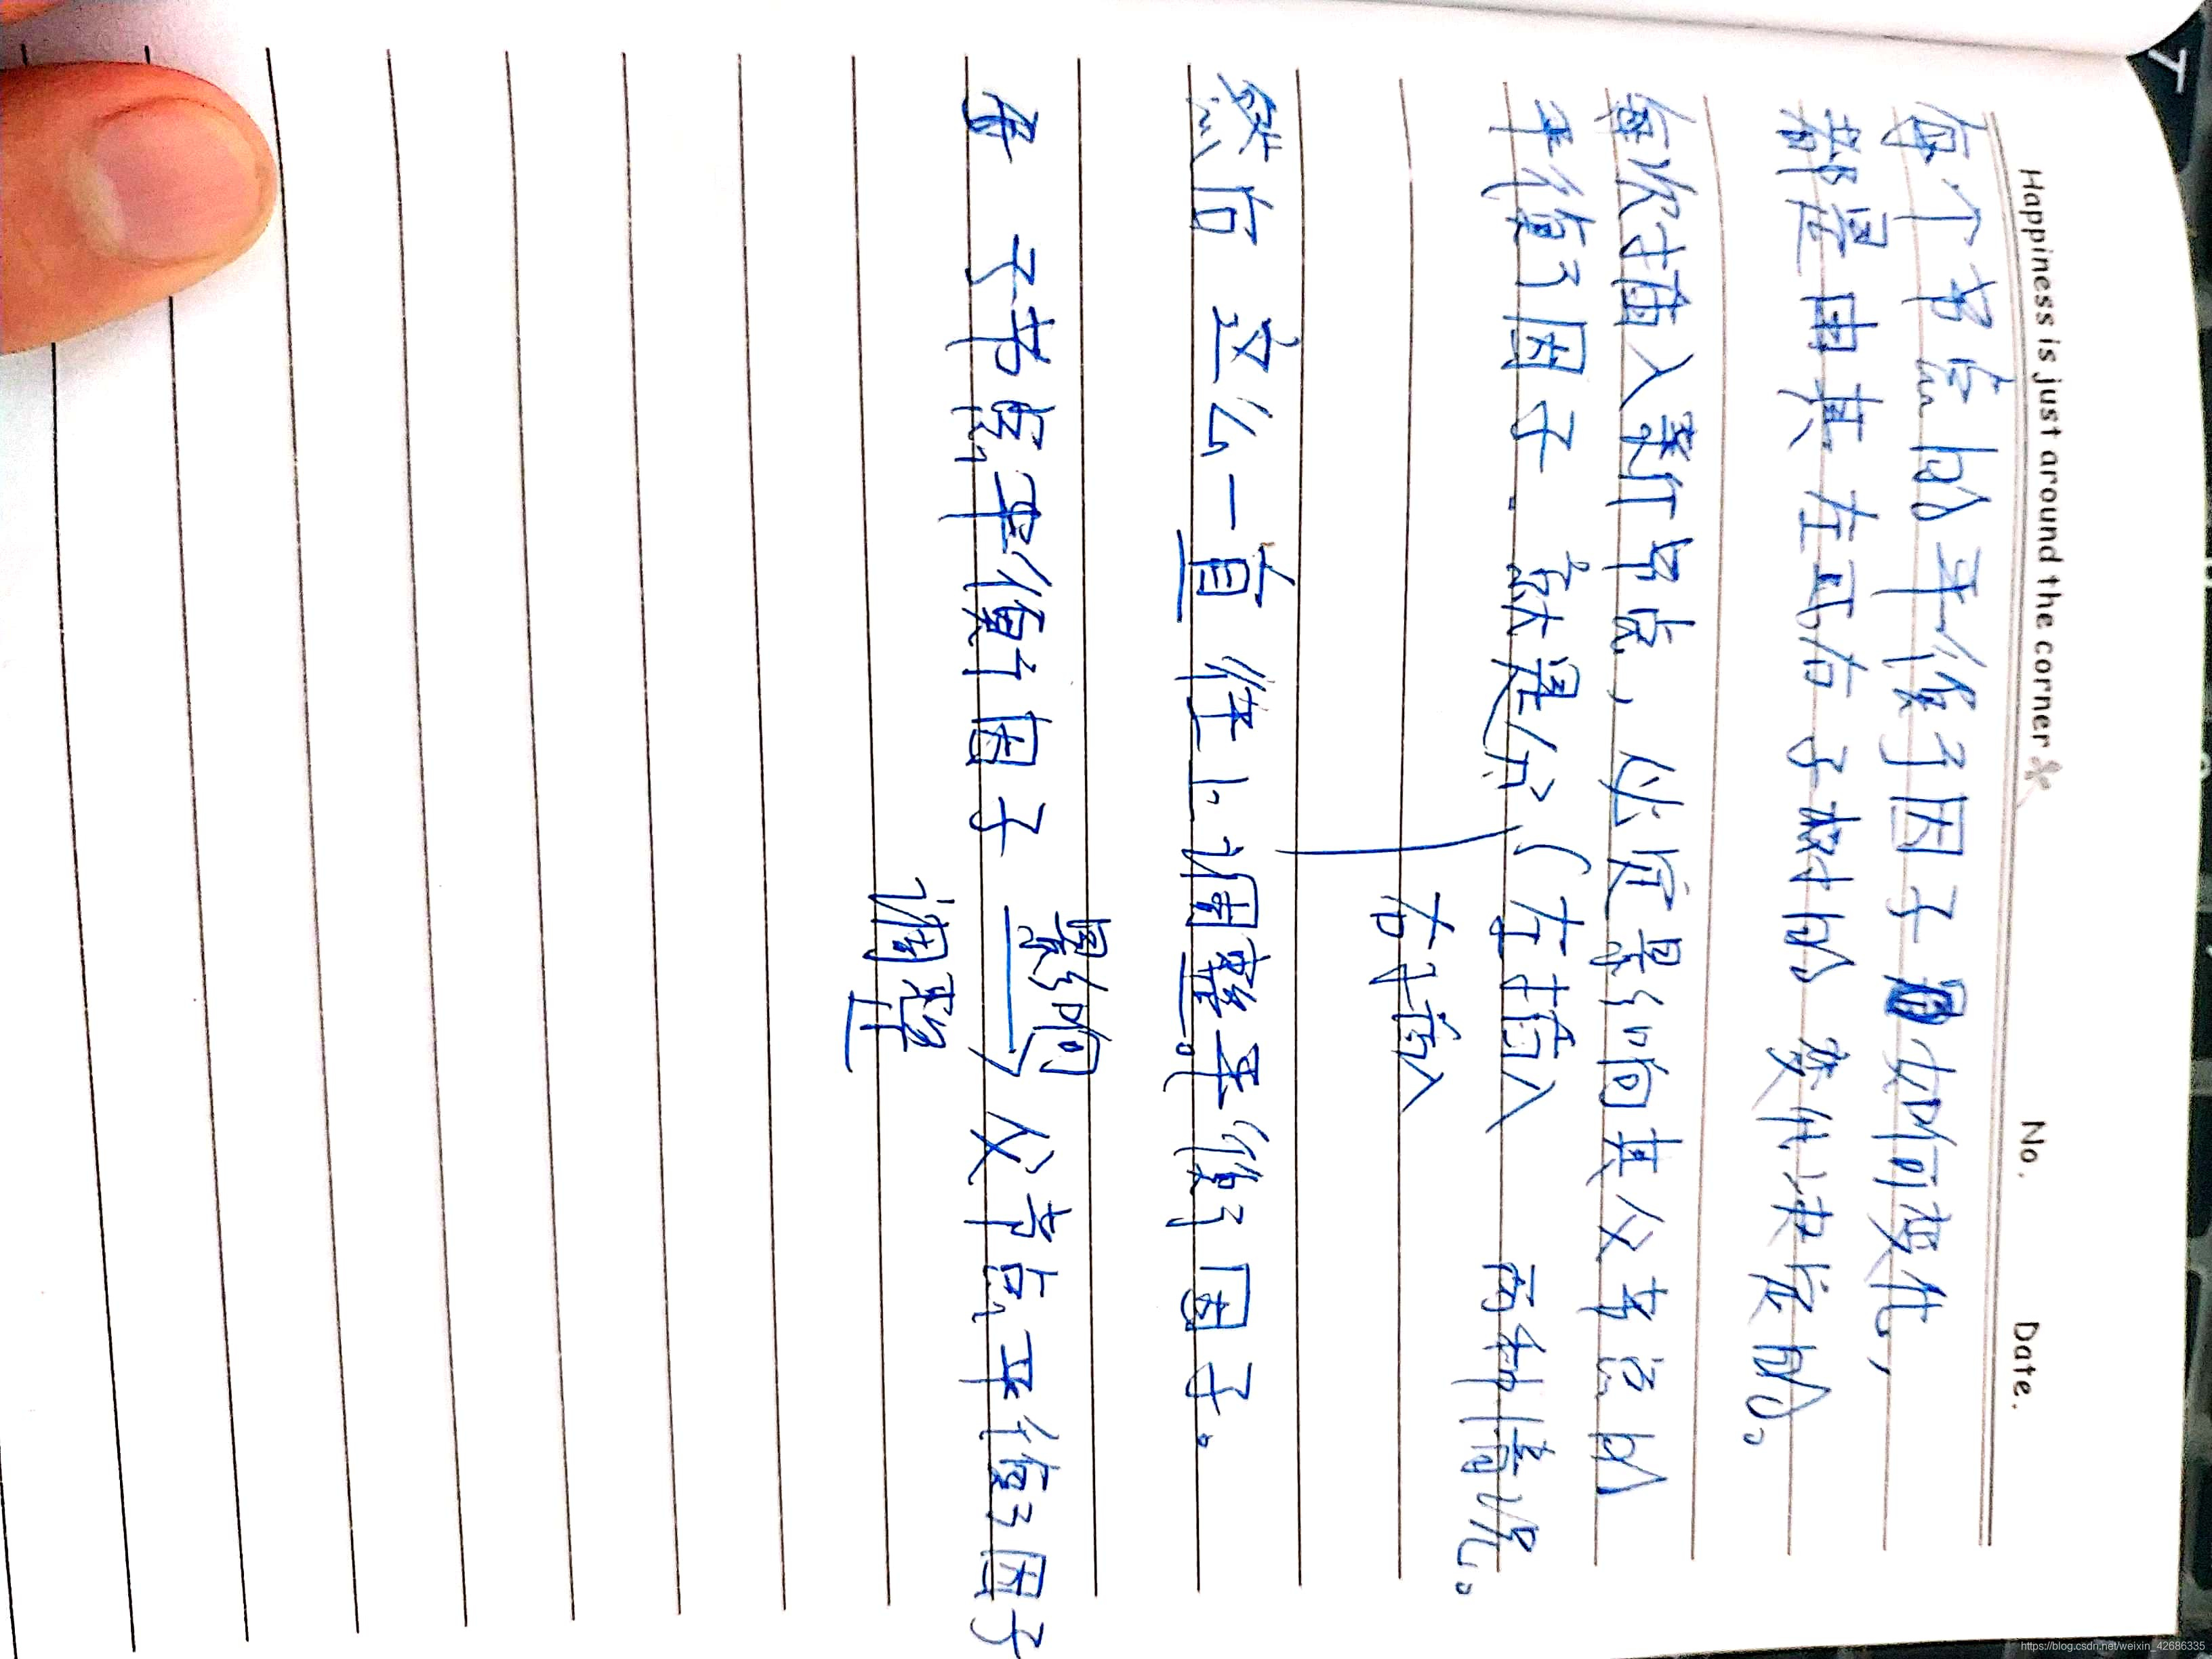 Happiness is just around the corner No. Date.
每个节点的平衡因子如何变化,
都是由其左或右子树的变化决定的。
每次插入新节点,必定影响其父节点的
平衡因子. 就是分 左插入 两种情况。
右插入
然后 这么一直往上调整平衡因子。
影响
看 子节点平衡因子 父节点平衡因子
调整
https://blog.csdn.net/weixin_42686335